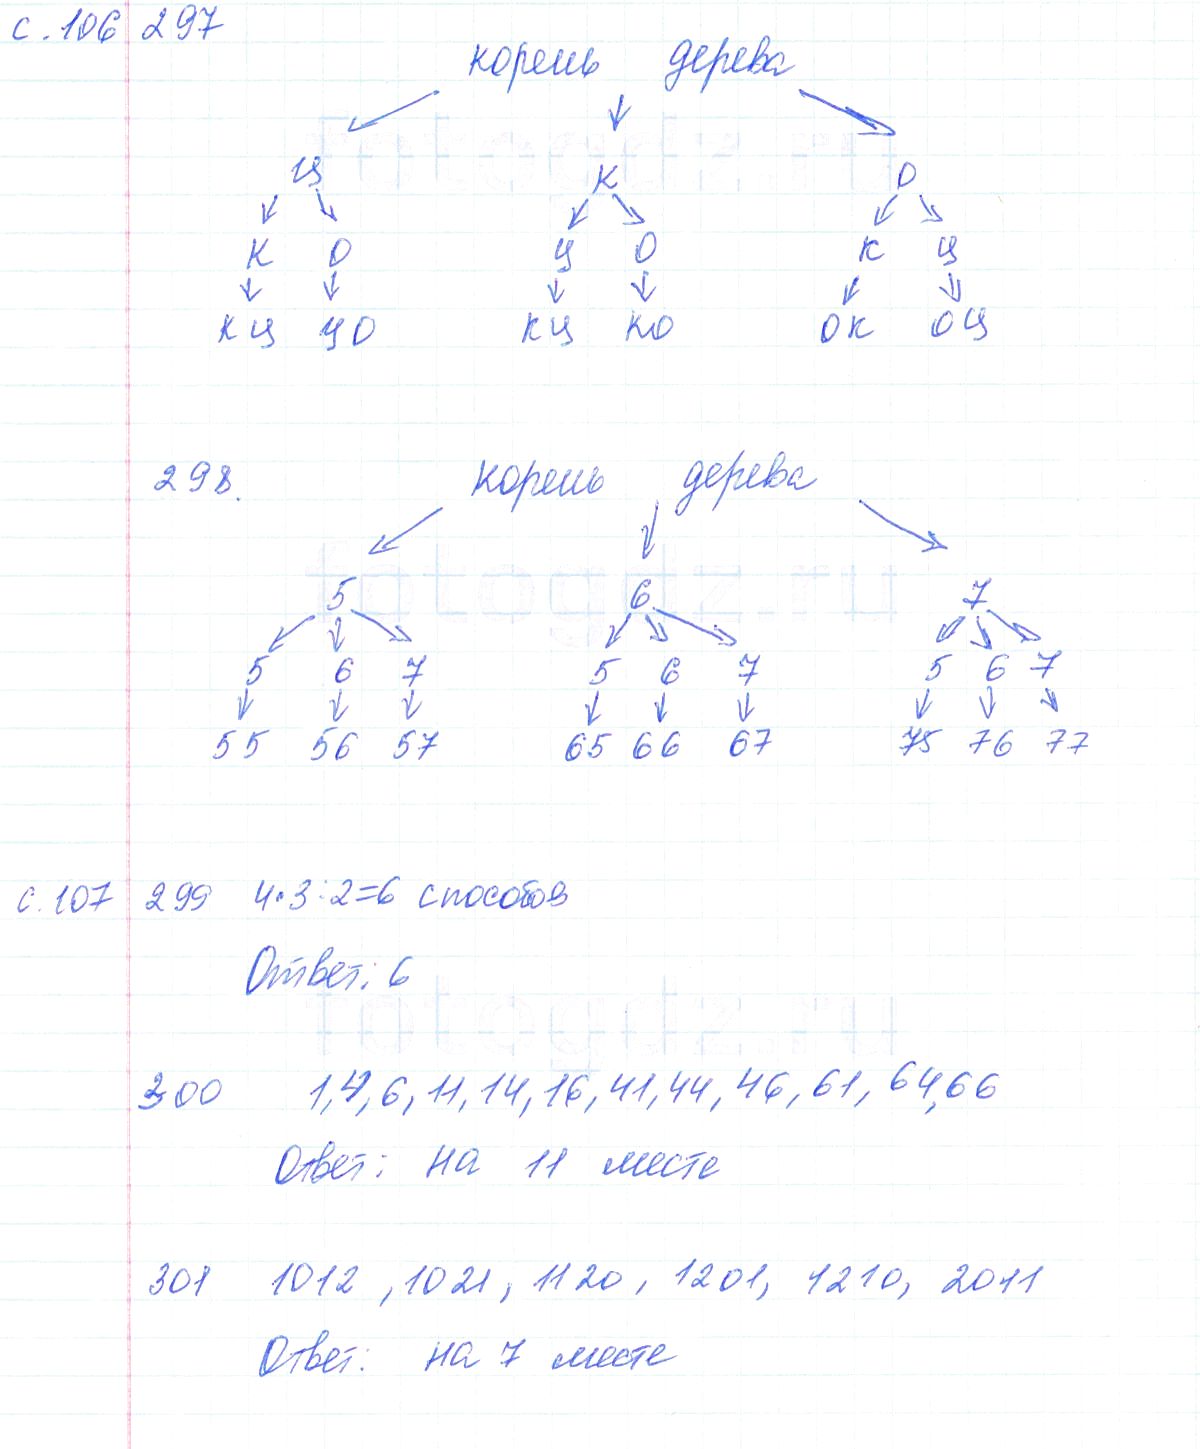 с. 106 297
корень дерева
fotogdz.ru
Ц К О
К О Ц О К Ц
КЦ ЦО КЦ КО ОК ОЦ
298. корень дерева
fotogdz.ru
5 6 7
5 6 7 5 6 7 5 6 7
55 56 57 65 66 67 75 76 77
с. 107 299 4·3:2=6 способов
Ответ: 6
fotogdz.ru
300 1,4,6,11,14,16,41,44,46,61,64,66
Ответ: на 11 месте
301 1012, 1021, 1120, 1201, 1210, 2011
Ответ: на 7 месте